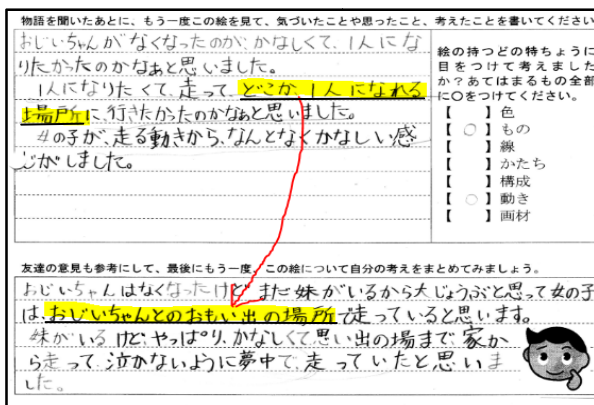 物語を聞いたあとに、もう一度この絵を見て、気づいたことや思ったこと、考えたことを書いてください
おじいちゃんがなくなったのが、かなしくて、1人にな
りたかったのかなぁと思いました。
1人になりたくて、走って、どこか、1人になれる
場所に、行きたかったのかなぁと思いました。
女の子が、走る動きから、なんとなくかなしい感
じがしました。
絵の持つどの特ちょうに
目をつけて考えました
か?あてはまるもの全部
に○をつけてください。
【 】色
【 ○ 】もの
【 】線
【 】かたち
【 】構成
【 ○ 】動き
【 】画材
友達の意見も参考にして、最後にもう一度、この絵について自分の考えをまとめてみましょう。
おじいちゃんはなくなったけど、まだ妹がいるから大じょうぶと思って女の子
は、おじいちゃんとのおもい出の場所で走っていると思います。
妹がいるけど、やっぱり、かなしくて思い出の場まで家か
ら走って、泣かないように夢中で、走っていたと思いま
した。